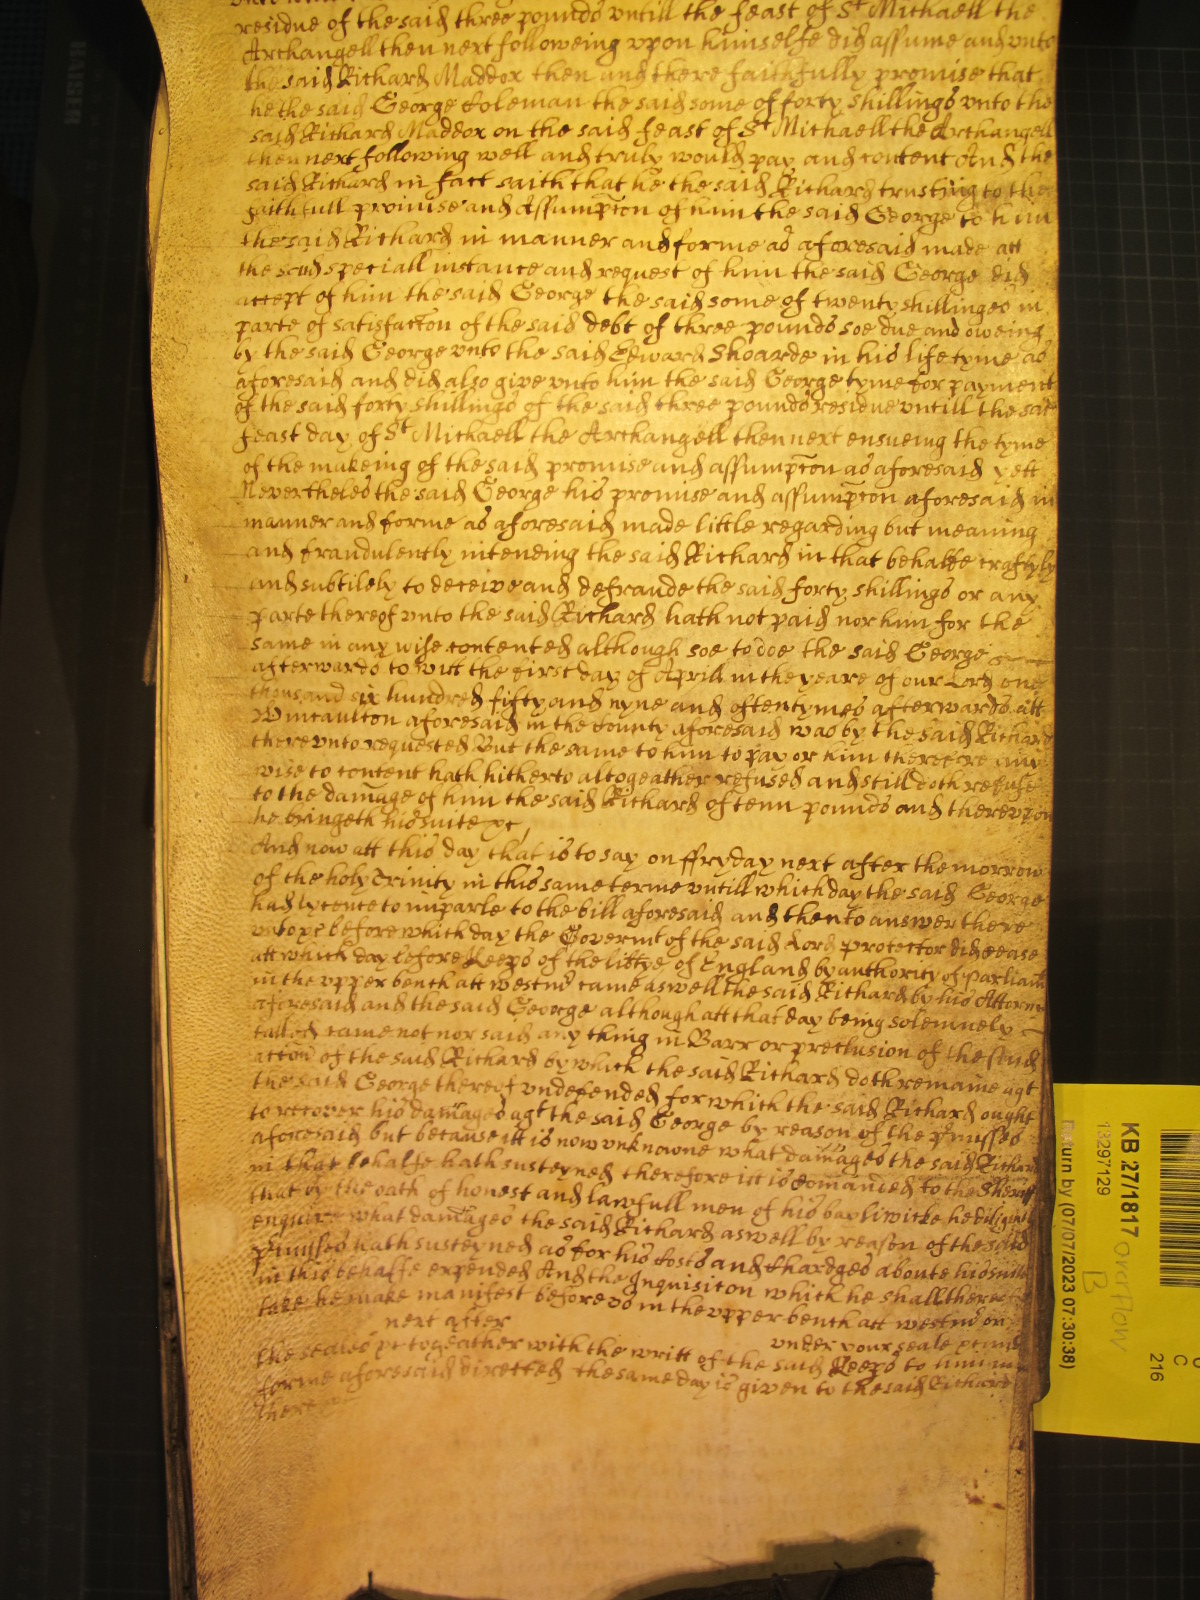 residue of the said three pounds untill the feast of St Michaell the
Archangell then next followeing upon himselfe did assume and unto
the said Richard Maddox then and there faithfully promise that
he the said George Coleman the said some of forty shillings unto the
said Richard Maddox on the said feast of St Michaell the Archangell
then next following well and truly would pay and content And the
said Richard in fact saith that he the said Richard trusting to the
faithfull promise and Assumpcon of him the said George to him
the said Richard in manner and forme as aforesaid made att
the said speciall instance and request of him the said George did
accept of him the said George the said some of twenty shillinges in
parte of satisfaccon of the said debt of three pounds soe due and oweing
by the said George unto the said Edward Shoarde in his life tyme as
aforesaid and did also give unto him the said George tyme for payment
of the said forty shillings of the said three pounds residue untill the said
feast day of St Michaell the Archangell then next ensueing the tyme
of the makeing of the said promise and assumpcon as aforesaid yett
Neverthelesse the said George his promise and assumpcon aforesaid in
manner and forme as aforesaid made little regarding but meaning
and fraudulently intending the said Richard in that behalfe craftyly
and subtilely to deceive and defraude the said forty shillings or any
parte thereof unto the said Richard hath not paid nor him for the
same in any wise contented although soe to doe the said George
afterwards to witt the first day of Aprill in the yeare of our Lord one
thousand six hundred fifty and nyne and oftentymes afterwards att
aforesaid in the County aforesaid was by the said Richard
thereunto requested But the same to him to pay or him therefore any
wise to content hath hitherto altogeather refused and still doth refuse
to the damage of him the said Richard of tenn pounds and thereupon
he bringeth his suite &c
And now att this day that is to say on ffryday next after the morrow
of the holy Trinity in this same terme untill which day the said George
had lycence to imparle to the bill aforesaid and then to answer there
unto &c before which day the Governt of the said Lord protector did cease
att which day before Keeps of the libtye of England by authority of Parliamt
in the upper bench att westmr came aswell the said Richard by his Attorny
aforesaid and the said George although att that day being solemnely
called came not nor said any thing in Barr or preclusion of the said
accon of the said Richard by which the said Richard doth remaine agt
the said George thereof undefended for which the said Richard ought
to recover his damages agt the said George by reason of the pmisses
aforesaid but because itt is now unknowne what damages the said Richard
in that behalfe hath susteyned therefore itt is comanded to the Sheriff
that by the oath of honest and lawfull men of his bayliwicke he diligently
enquire what damages the said Richard aswell by reason of the said
pmisses hath susteyned as for his Costs and Chardges aboute his suite
in this behalfe expended And the Inquisicon which he shall thereof
take he make manifest before us in the upper bench att westmr on
next after under your seale &c and
the seales &c togeather with the writt of the said Keeps to him in
forme aforesaid directed the same day is given to the said Richard
there &c
KB 27/1817 overflow
B
13297129
Return by (07/07/2023 07:30:38)
C
216
KAISER